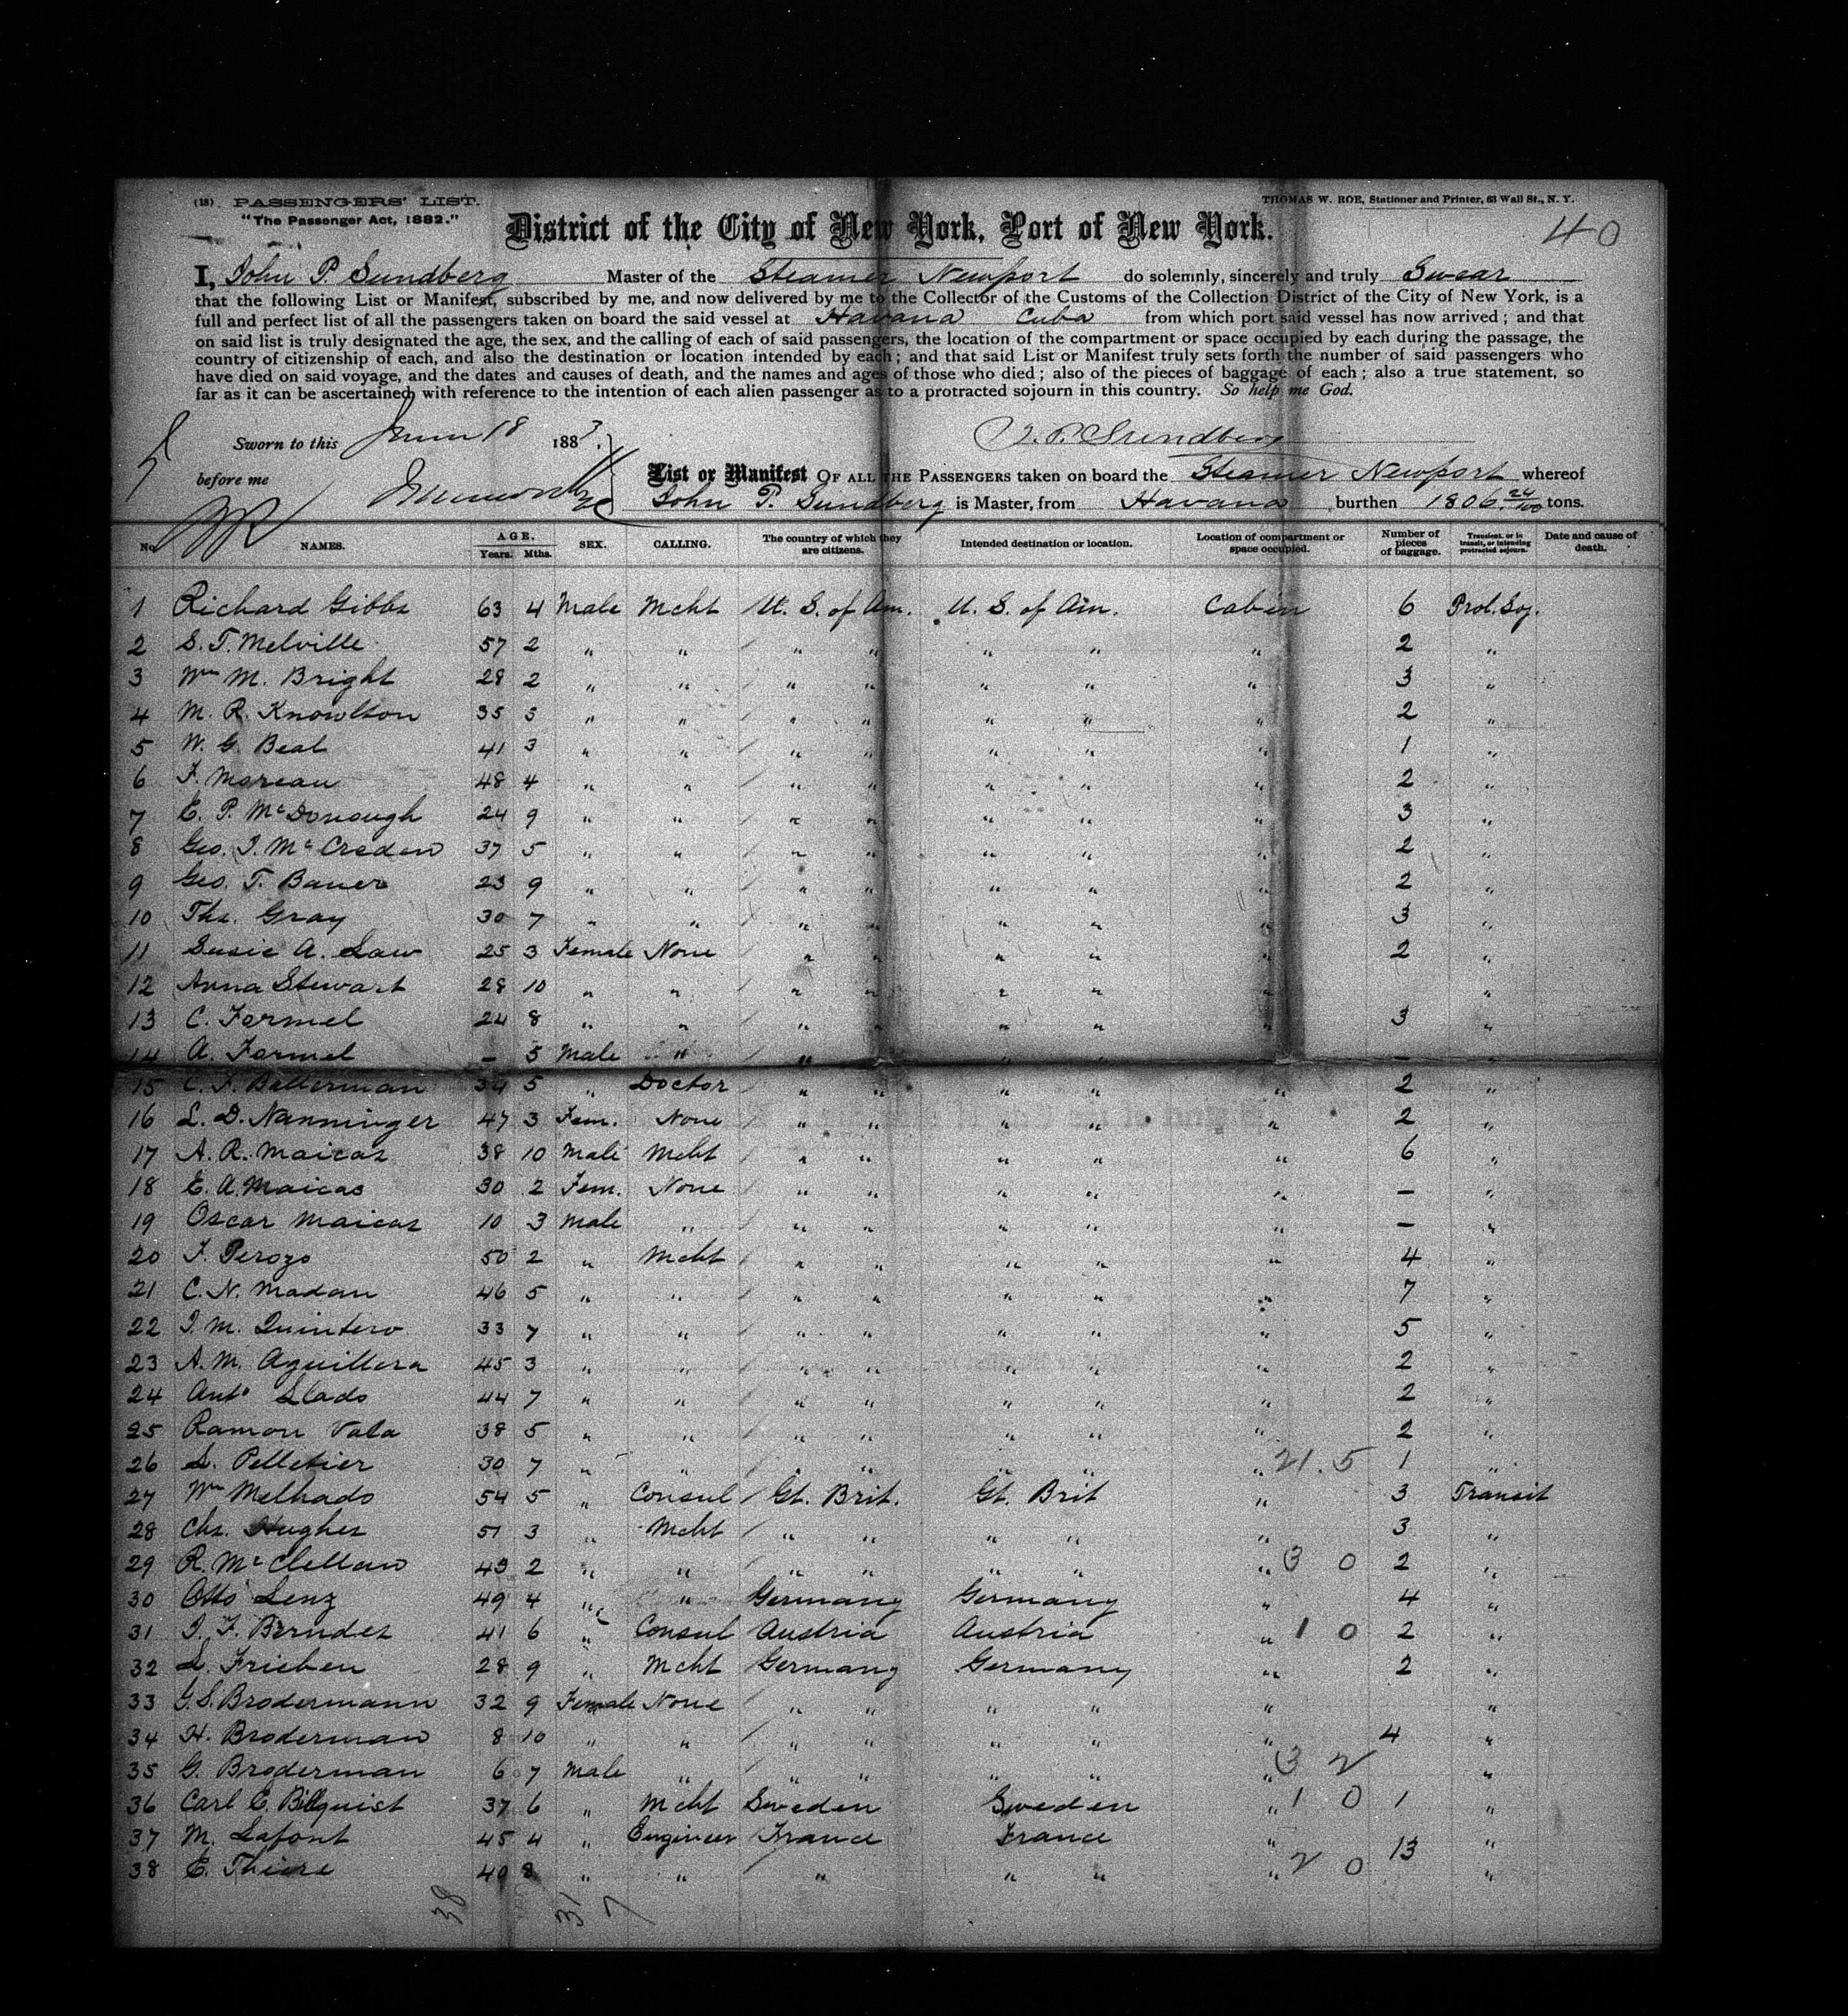 (18) PASSENGERS' LIST.
"The Passenger Act, 1882."
THOMAS W. ROE, Stationer and Printer, 63 Wall St., N. Y.
40
District of the City of New York, Port of New York.
I, John P. Sundberg Master of the Steamer Newport do solemnly, sincerely and truly Swear
that the following List or Manifest, subscribed by me, and now delivered by me to the Collector of the Customs of the Collection District of the City of New York, is a
full and perfect list of all the passengers taken on board the said vessel at Havana Cuba from which port said vessel has now arrived; and that
on said list is truly designated the age, the sex, and the calling of each of said passengers, the location of the compartment or space occupied by each during the passage, the
country of citizenship of each, and also the destination or location intended by each; and that said List or Manifest truly sets forth the number of said passengers who
have died on said voyage, and the dates and causes of death, and the names and ages of those who died; also of the pieces of baggage of each; also a true statement, so
far as it can be ascertained with reference to the intention of each alien passenger as to a protracted sojourn in this country. So help me God.
Sworn to this June 18 1883.
J. P. Sundberg
before me
List or Manifest OF ALL THE PASSENGERS taken on board the Steamer Newport whereof
John P. Sundberg is Master, from Havana burthen 1806 24/100 tons.
No. NAMES. AGE. Years. Mths. SEX. CALLING. The country of which they are citizens. Intended destination or location. Location of compartment or space occupied. Number of pieces of baggage. Transient, or in transit, or intending protracted sojourn. Date and cause of death.
1 Richard Gibbs 63 4 Male Mcht U. S. of Am. U. S. of Am. Cabin 6 Prot. Soj.
2 S. T. Melville 57 2 " " " " " " " 2 "
3 Wm M. Bright 28 2 " " " " " " " 3 "
4 M. R. Knowlton 35 5 " " " " " " " 2 "
5 W. G. Beal 41 3 " " " " " " " 1 "
6 F. Moreau 48 4 " " " " " " " 2 "
7 E. P. McDonough 24 9 " " " " " " " 3 "
8 Geo. J. McCreden 37 5 " " " " " " " 2 "
9 Geo. T. Bauer 23 9 " " " " " " " 2 "
10 Ths. Gray 30 7 " " " " " " " 3 "
11 Susie A. Law 25 3 Female None " " " " " 2 "
12 Anna Stewart 28 10 " " " " " " " "
13 C. Formel 24 8 " " " " " " " 3 "
14 A. Formel - 5 Male " " " " " - "
15 C. F. Ballerman 34 5 " Doctor " " " " " 2 "
16 L. D. Nanninger 47 3 Fem. None " " " " " 2 "
17 A. R. Maicas 38 10 Male Mcht " " " " " 6 "
18 E. A. Maicas 30 2 Fem. None " " " " " - "
19 Oscar Maicas 10 3 Male " " " " " " - "
20 F. Perozo 50 2 " Mcht " " " " " 4 "
21 C. N. Madan 46 5 " " " " " " " 7 "
22 J. M. Quintero 33 7 " " " " " " " 5 "
23 A. M. Aguillera 45 3 " " " " " " " 2 "
24 Anto Llado 44 7 " " " " " " " 2 "
25 Ramon Vala 38 5 " " " " " " " 2 "
26 L. Pelletier 30 7 " " " " " " " 21. 5 1 "
27 Wm Melhado 54 5 " Consul Gt. Brit. Gt. Brit " 3 Transit
28 Chs. Hughes 51 3 " Mcht " " " " " 3 "
29 R. McClellan 43 2 " " " " " " " 3 0 2 "
30 Otto Lenz 49 4 " " Germany Germany " 4 "
31 J. F. Berndes 41 6 " Consul Austria Austria " 1 0 2 "
32 L. Frieben 28 9 " Mcht Germany Germany " 2 "
33 G. S. Brodermann 32 9 Female None " " " " " "
34 H. Broderman 8 10 " " " " " " " 4 "
35 G. Broderman 6 7 Male " " " " " " 3 2 "
36 Carl E. Billquist 37 6 " Mcht Sweden Sweden " 1 0 1 "
37 M. Lafont 45 4 " Engineer France France " 13 "
38 E. Thiere 40 8 " " " " " " 2 0 "
38 31 7